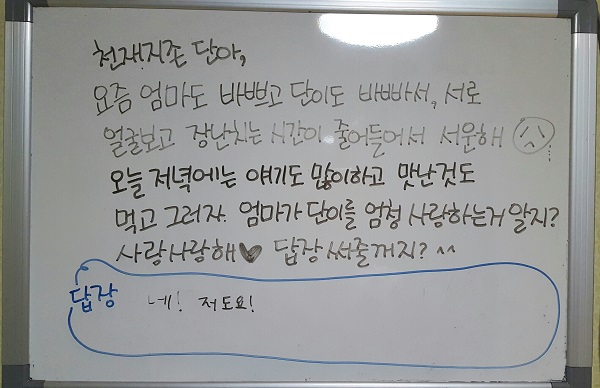 천재지존 단아,
요즘 엄마도 바쁘고 단이도 바빠서, 서로
얼굴보고 장난치는 시간이 줄어들어서 서운해
오늘 저녁에는 얘기도 많이하고 맛난것도
먹고 그러자. 엄마가 단이를 엄청 사랑하는거 알지?
사랑사랑해♥ 답장 써줄꺼지? ^^
답장 네! 저도요!